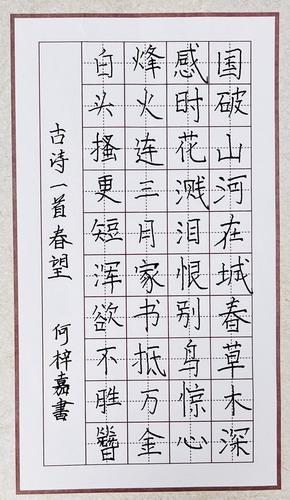 国破山河在城春草木深
感时花溅泪恨别鸟惊心
烽火连三月家书抵万金
白头搔更短浑欲不胜簪
古诗一首春望 何梓嘉書